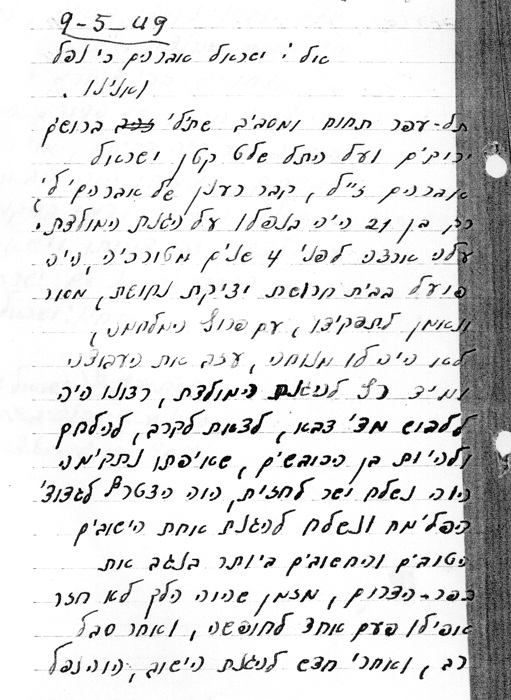 9-5-49
אל י ישראל אברהם כי נפל
ואנינו.
תל-עפר תחום ומסביב שתילי ברושים
ירוקים ועל התל שלט קטן ישראל
אברהם ז״ל, קבר רענן של אברהם
רק בן 21 היה בנפלו על הגנת המולדת.
עלה ארצה לפני 4 שנים מטורכיה, היה
פועל בבית חרושת יציקת נחושת, מסור
ונאמן לתפקידו, עם פרוץ המלחמה,
לא היה לו מנוחה, עזב את העבודה
ומיד רץ להגנת המולדת, רצונו היה
ללבוש מדי צבא, לצאת לקרב, להלחם
ולהיות בן הכובשים, שאיפתו נתקימה
הוה נשלח ישר לחזית, הוה הצטרף לגדוד
הפלימח ונשלח להגנת אחת הישובים
הטובים והחשובים ביותר בנגב את
כפר-הדרום, מזמן שהוה הלך לא חזר
אפילו פעם אחד לחופשה, ואחר סבל
רב, ואחרי חדש להגנת הישוב, הוה נפל